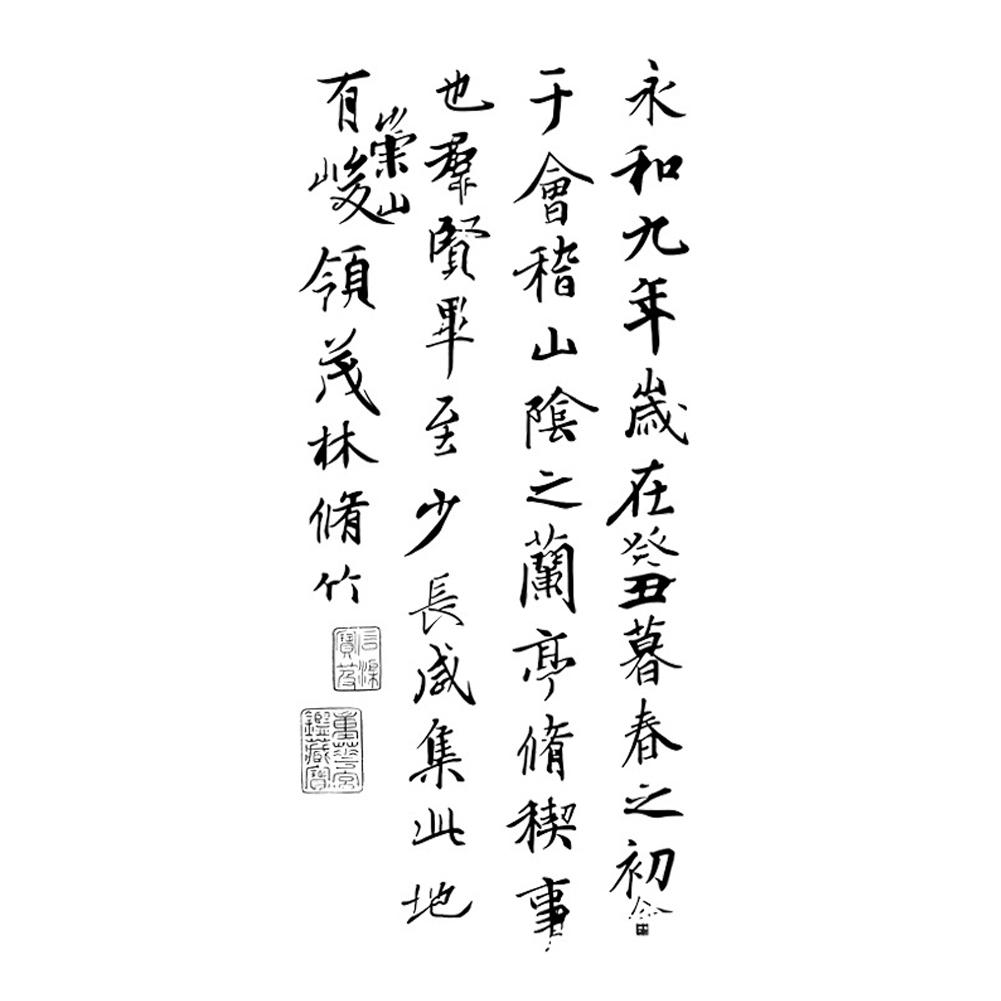 永和九年歲在癸丑暮春之初會
于會稽山陰之蘭亭脩稧事
也羣賢畢至少長咸集此地
有崇山峻領茂林脩竹
重華宮鑑藏寶